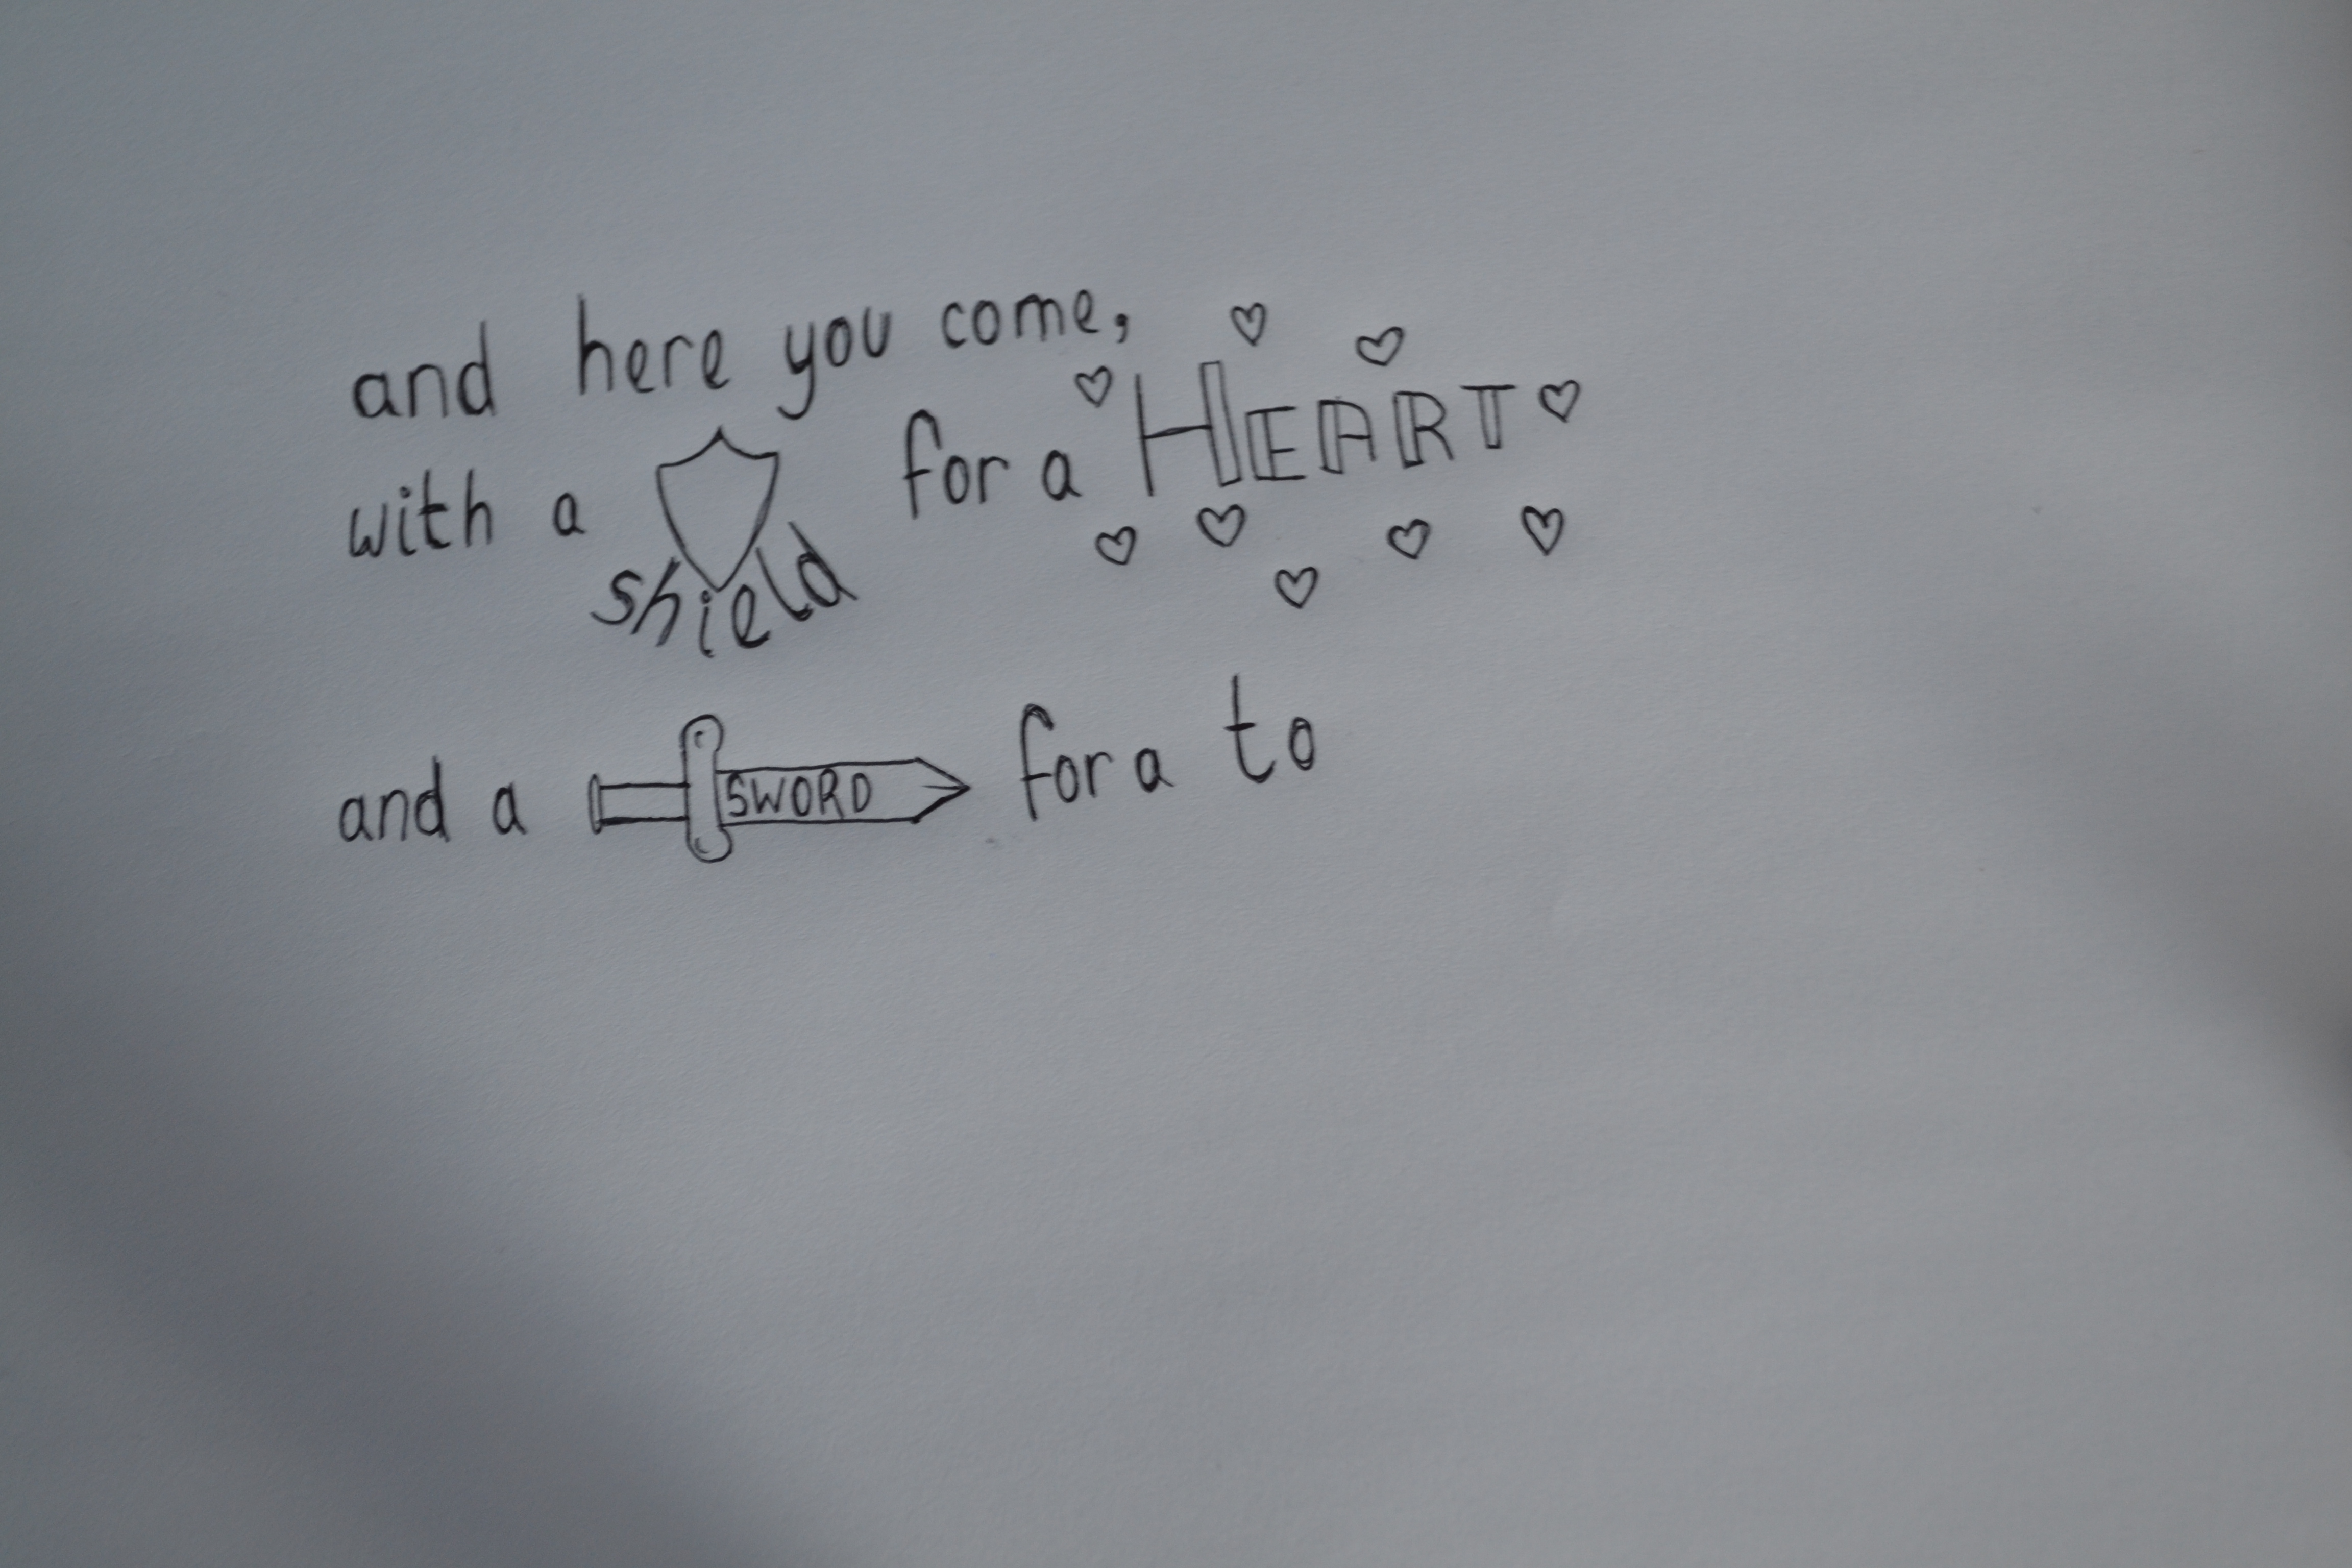 and here you come,
with a shield for a HEART
and a SWORD for a to